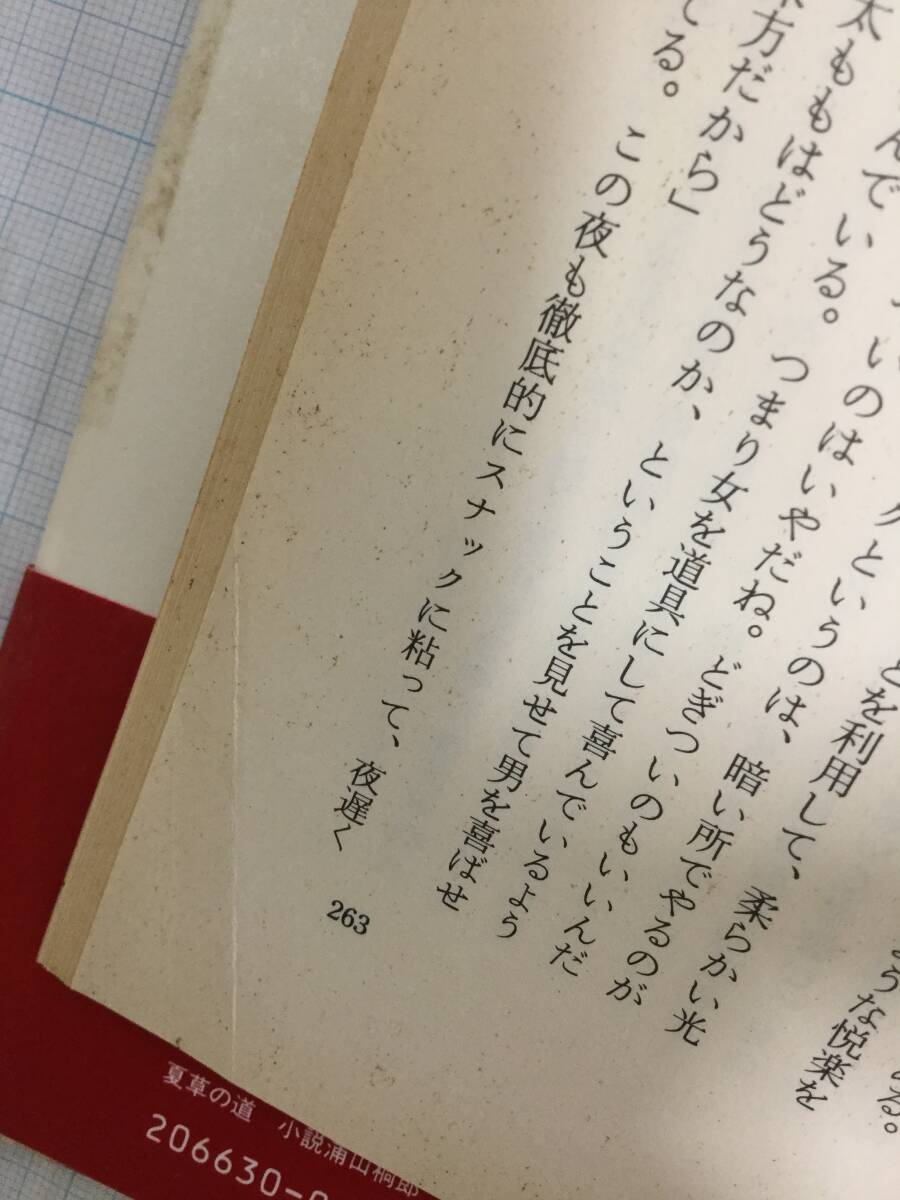 ような悦楽を
とを利用して、柔らかい光
クというのは、暗い所でやるのが
いのはいやだね。どぎついのもいいんだ
んでいる。つまり女を道具にして喜んでいるよう
太ももはどうなのか、ということを見せて男を喜ばせ
方だから」
てる。この夜も徹底的にスナックに粘って、夜遅く
263
夏草の道 小説浦山桐郎
206630-